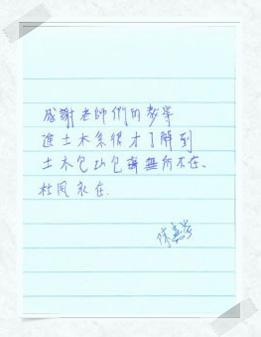 感謝老師們的教學
進土木系後才了解到
土木包山包海無所不在、
杜風永在.